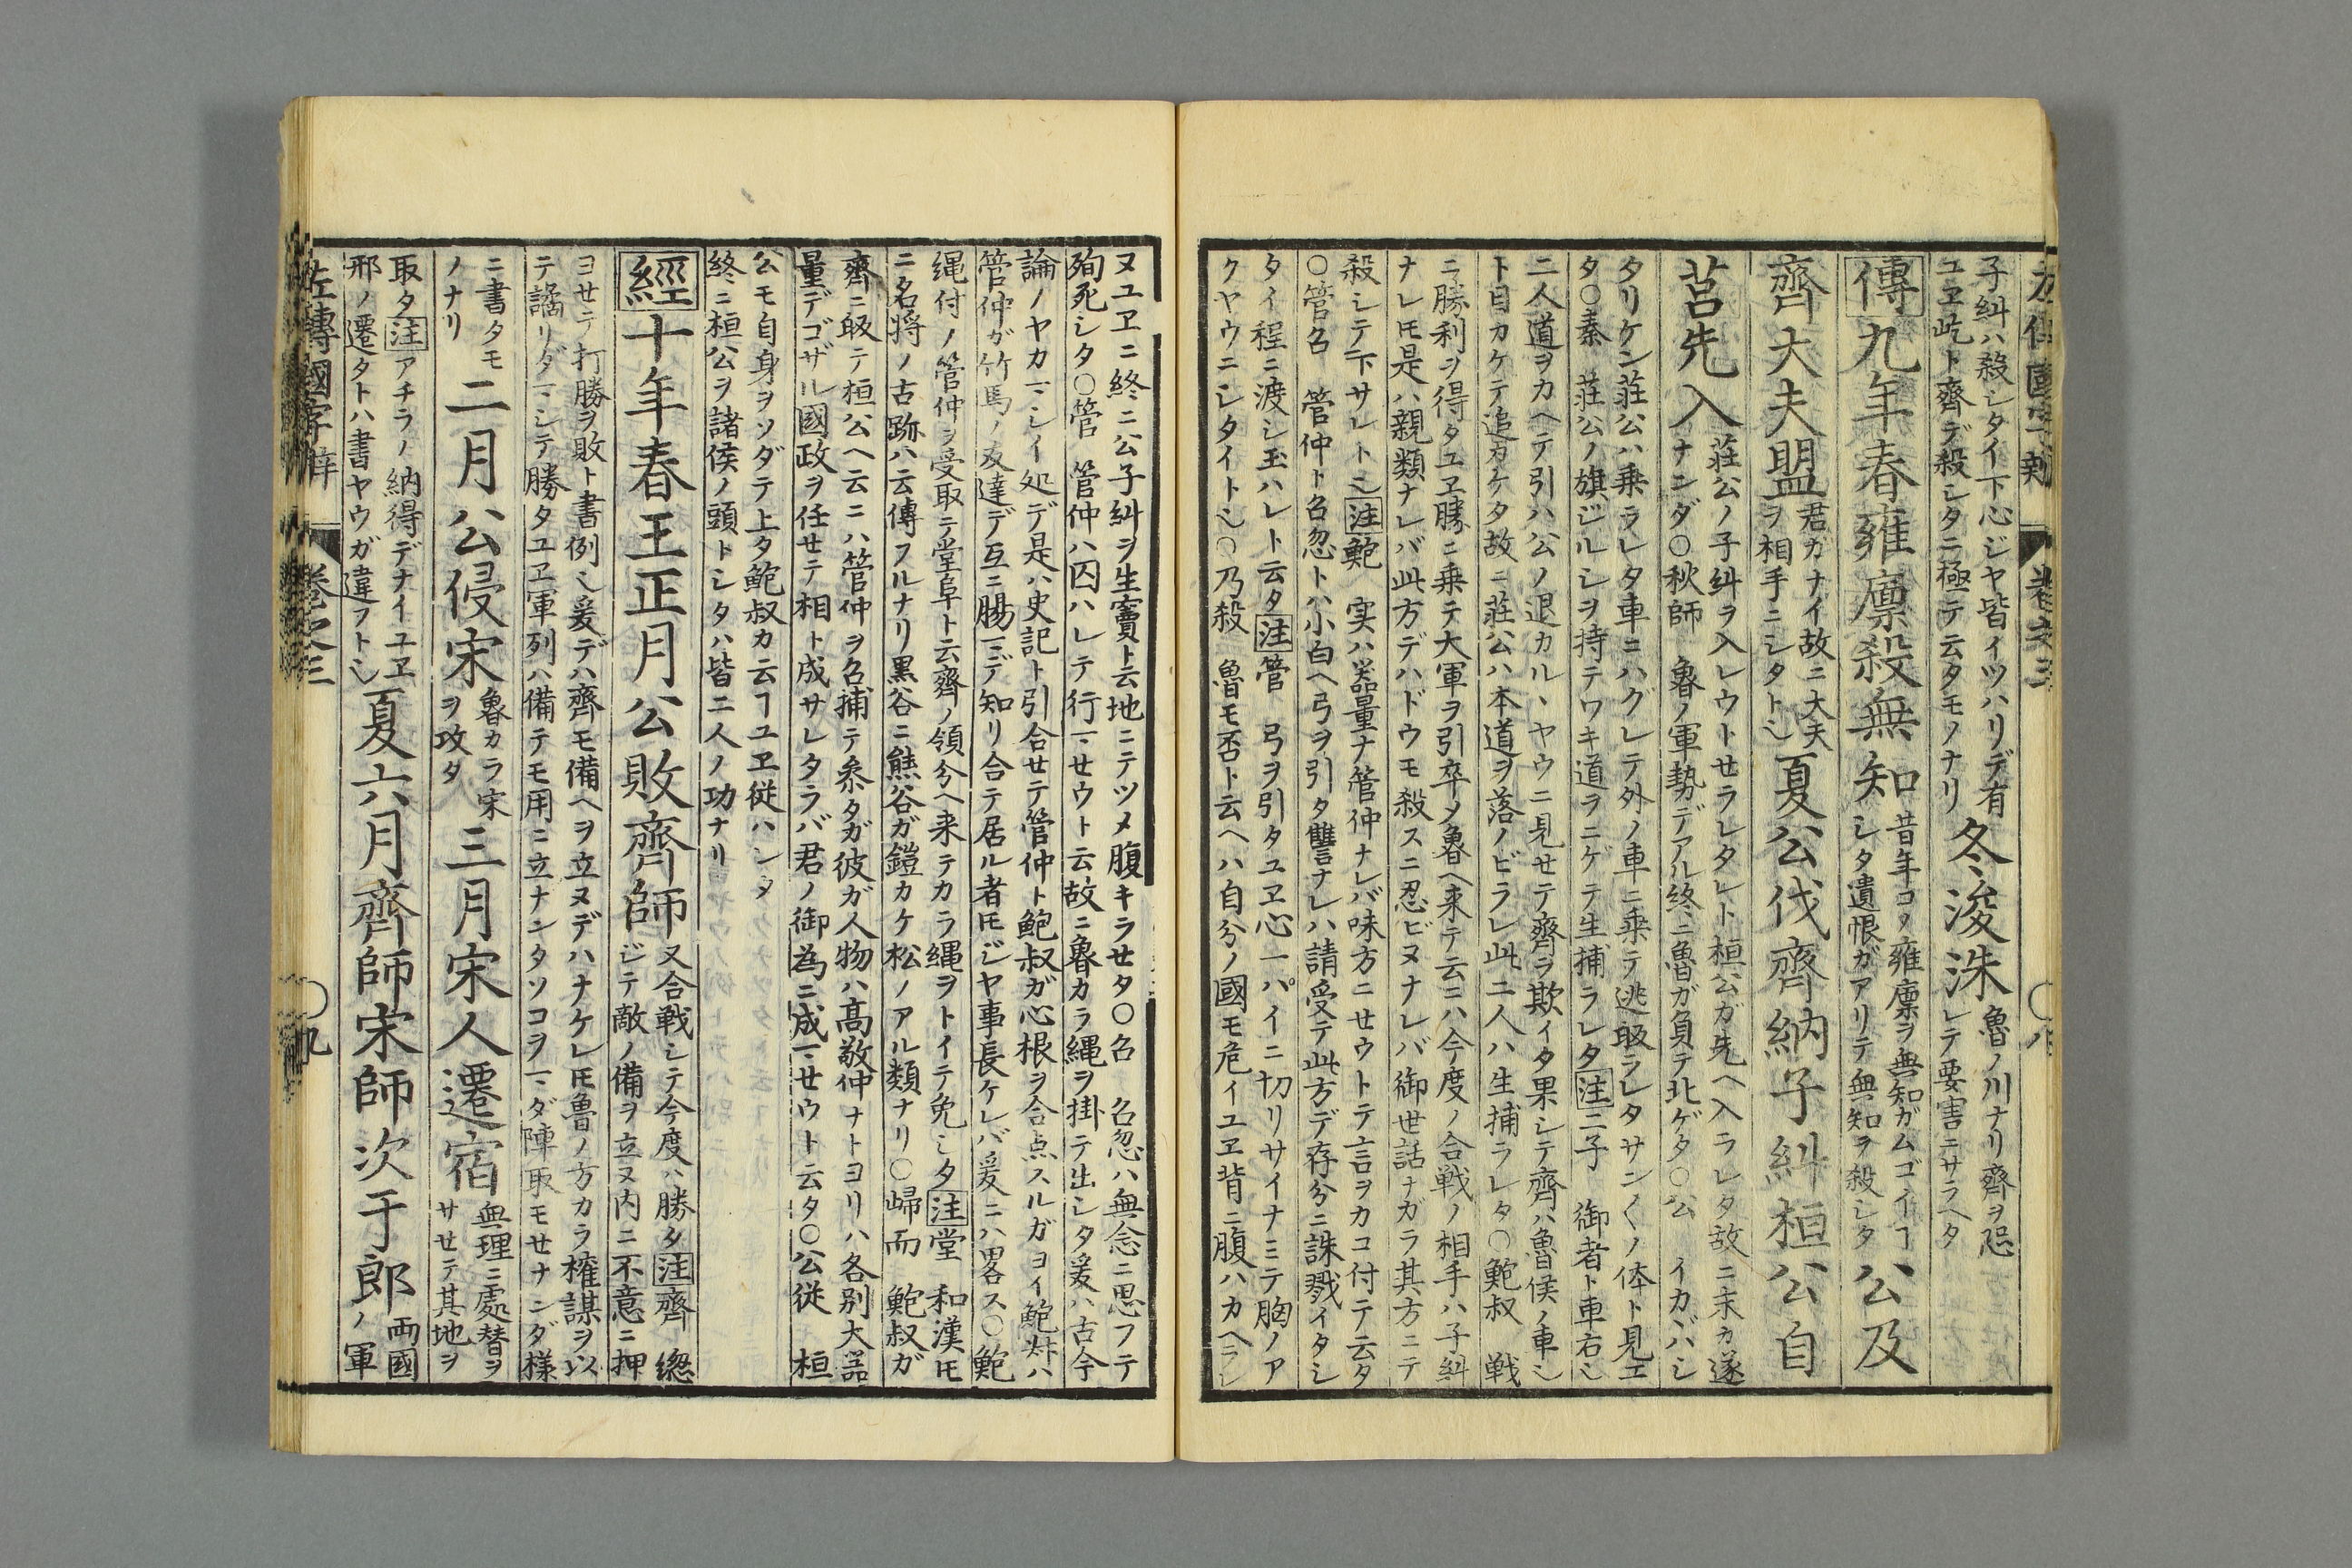 子糾ハ殺シタイ下心ジヤ皆イツハリデ有
ユヱ屹ト齊デ殺シタニ極テ云タモノナリ
冬浚洙
魯ノ川ナリ齊ヲ忌
レテ要害ニサラヘタ
傳九年春雍廩殺無知
昔年コノ雍廩ヲ無知ガムゴイヿ
シタ遺恨ガアリテ無知ヲ殺シタ
公及
齊大夫盟
君ガナイ故ニ大夫
ヲ相手ニシタト〆
夏公伐齊納子糾桓公自
莒先入
莊公ノ子糾ヲ入レウトせラレタレト桓公ガ先ヘ入ラレタ故ニ末カ遂
ナンダ〇秋師 魯ノ軍勢デアル終ニ魯ガ負テ北ゲタ〇公 イカバシ
タリケン莊公ハ乗ラレタ車ニハグレテ外ノ車ニ乗テ逃皈ラレタサン〱ノ体ト見エ
タ〇秦 莊公ノ旗ジルシヲ持テワキ道ラニゲテ生捕ラレタ注二子 御者ト車右〆
二人道ヲカヘテ引ハ公ノ退カルヽヤウニ見せテ齊ラ欺イタ果シテ齊ハ魯侯ノ車〆
ト目カケテ追カケタ故ニ莊公ハ本道ヲ落ノビラレ此二人ハ生捕ラレタ〇鮑叔 戦
ニ勝利ヲ得タユヱ勝ニ乗テ大軍ヲ引卒メ魯ヘ来テ云ニハ今度ノ合戦ノ相手ハ子糾
ナレ𪜈是ハ親類ナレバ此方デハドウモ殺スニ忍ビヌナレバ御世話ナガラ其方ニテ
殺シテ下サレト〆注鮑 実ハ器量ナ管仲ナレバ味方ニせウトテ言ヲカコ付テ云タ
〇管召 管仲ト召忽トハ小白ヘ弓ヲ引タ讐ナレハ請受テ此方デ存分ニ誅戮イタシ
タイ程ニ渡シ玉ハレト云タ注管 弓ヲ引タユヱ心一パイニ切リサイナミテ胸ノア
クヤウニシタイト〆〇乃殺 魯モ否ト云ヘハ自分ノ國モ危イユヱ背ニ腹ハカヘラレ
ヌユヱニ終ニ公子糾ヲ生竇ト云地ニテツメ腹キラせタ〇召 召忽ハ無念ニ思フテ
殉死シタ〇管 管仲ハ囚ハレテ行マせウト云故ニ魯カラ縄ヲ掛テ出シタ爰ハ古今
論ノヤカマシイ処デ是ハ史記ト引合せテ管仲ト鮑叔ガ心根ヲ合点スルガヨイ鮑叔ハ
管仲ガ竹馬ノ友達デ互ニ腸マデ知リ合テ居ル者𪜈ジヤ事長ケレバ爰ニハ畧ス〇鮑
縄付ノ管仲ヲ受取テ堂阜ト云齊ノ領分ヘ来テカラ縄ヲトイテ免シタ注堂 和漢𪜈
ニ名将ノ古跡ハ云傳フルナリ黒谷ニ熊谷ガ鎧カケ松ノアル類ナリ〇歸而 鮑叔ガ
齊ニ皈テ桓公ヘ云ニハ管仲ヲ召捕テ参タガ彼ガ人物ハ高敬仲ナトヨリハ各別大器
量デゴザル國政ヲ任せテ相ト成サレタラバ君ノ御為ニ成マせウト云タ〇公従 桓
公モ自身ヲソダテ上タ鮑叔カ云ヿユヱ従ハシタ
終ニ桓公ヲ諸侯ノ頭トシタハ皆二人ノ功ナリ
經十年春王正月公敗齊師
又合戦シテ今度ハ勝タ注齊 總
ジテ敵ノ備ヲ立ヌ内ニ不意ニ押
ヨせテ打勝ヲ敗ト書例〆爰デハ齊モ備ヘヲ立ヌデハナケレ𪜈魯ノ方カラ権謀ヲ以
テ譎リダマシテ勝タユヱ軍列ハ備テモ用ニ立ナンタソコヲマダ陣取モせナンダ様
ニ書タモ
ノナリ
二月公侵宋
魯カラ宋
ヲ攻タ
三月宋人遷宿
無理ニ處替ヲ
サせテ其地ヲ
取タ注アチラノ納得デナイユヱ
邢ノ遷タトハ書ヤウガ違フト〆
夏六月齊師宋師次于郎
両國
ノ軍
左傳國字辯 卷之三 〇九